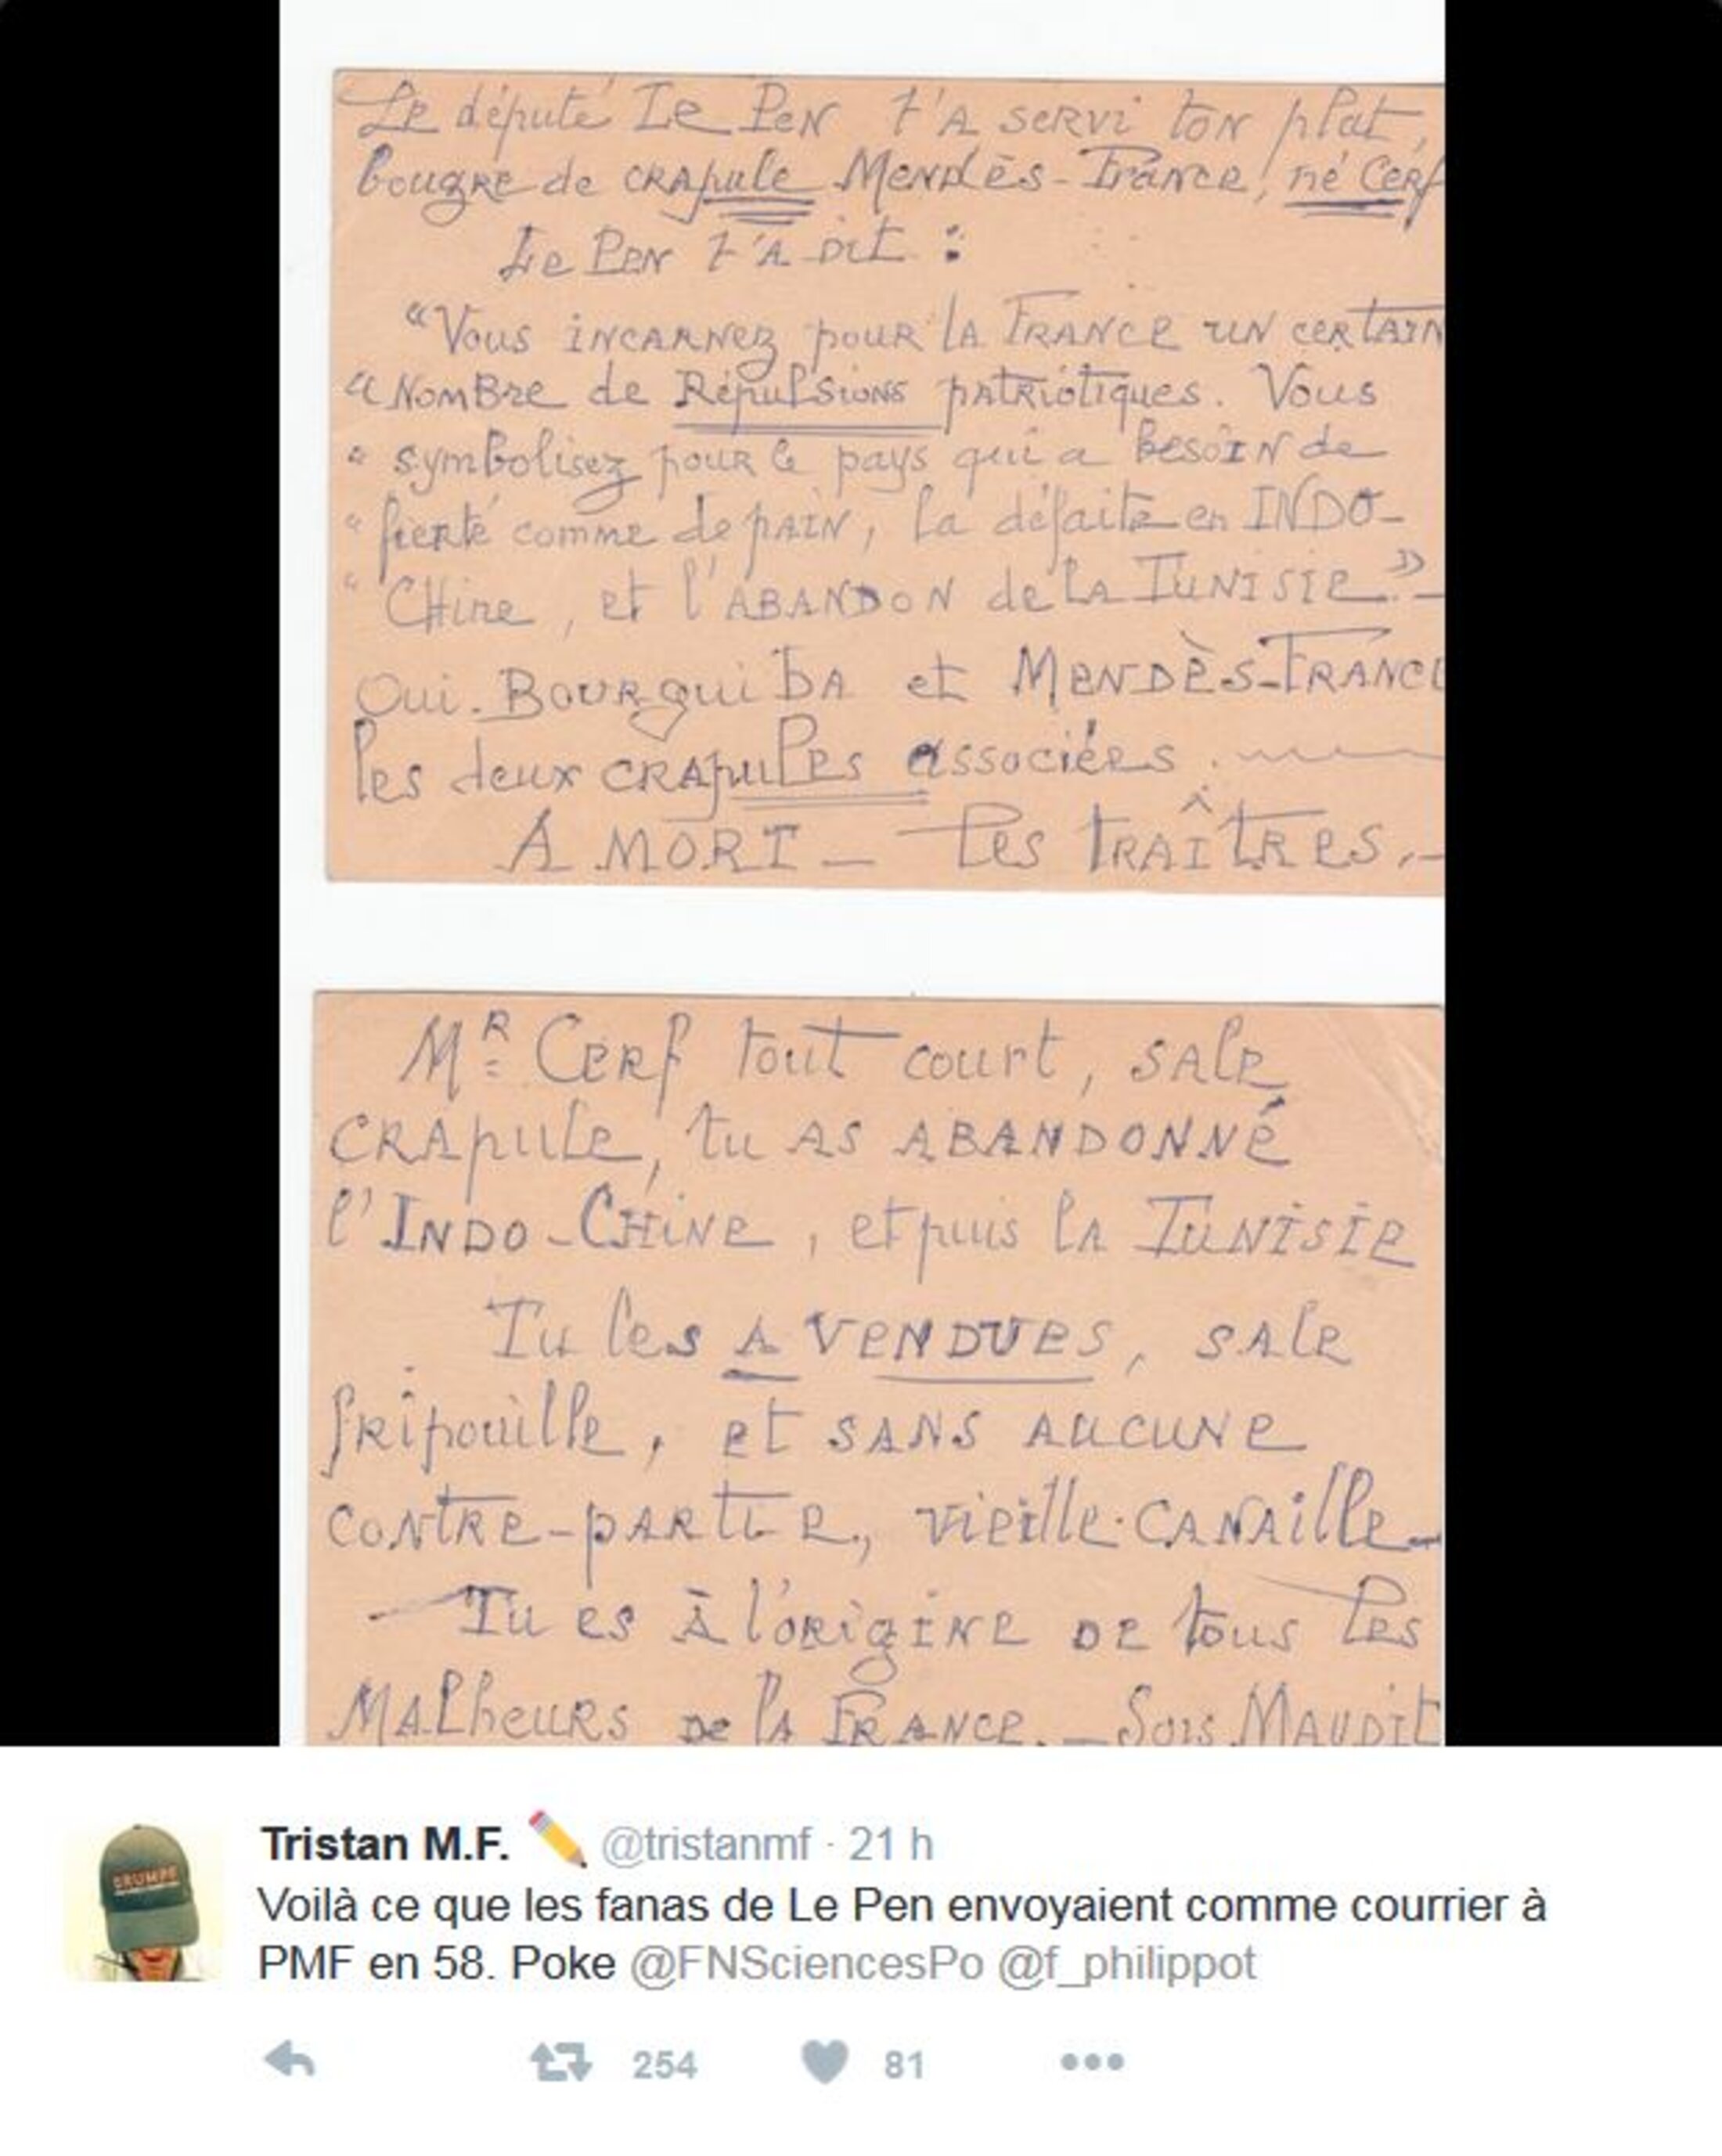 Le député Le Pen t'a servi ton plat,
bougre de crapule Mendès-France, né Cerf
Le Pen t'a dit :
"Vous incarnez pour la France un certain
"Nombre de Répulsions patriotiques. Vous
" symbolisez pour le pays qui a besoin de
" fierté comme de pain, la défaite en INDO-
" CHine, et l'ABANDON de la TUNISIE." -
Oui. Bourguiba et Mendès-France
les deux crapules associées.
A MORT - les TRAÎTRES.-
MR Cerf tout court, sale
crapule, tu as ABANDONNÉ
l'INDO-CHINE, et puis la TUNISIE
Tu les A VENDUES, sale
fripouille, et sans aucune
contre-partie, vieille canaille-
- Tu es à l'origine de tous les
Malheurs de la France. - Sois Maudit
DRUMPF
Tristan M.F. ✏️ @tristanmf · 21 h
Voilà ce que les fanas de Le Pen envoyaient comme courrier à
PMF en 58. Poke @FNSciencesPo @f_philippot
254 81